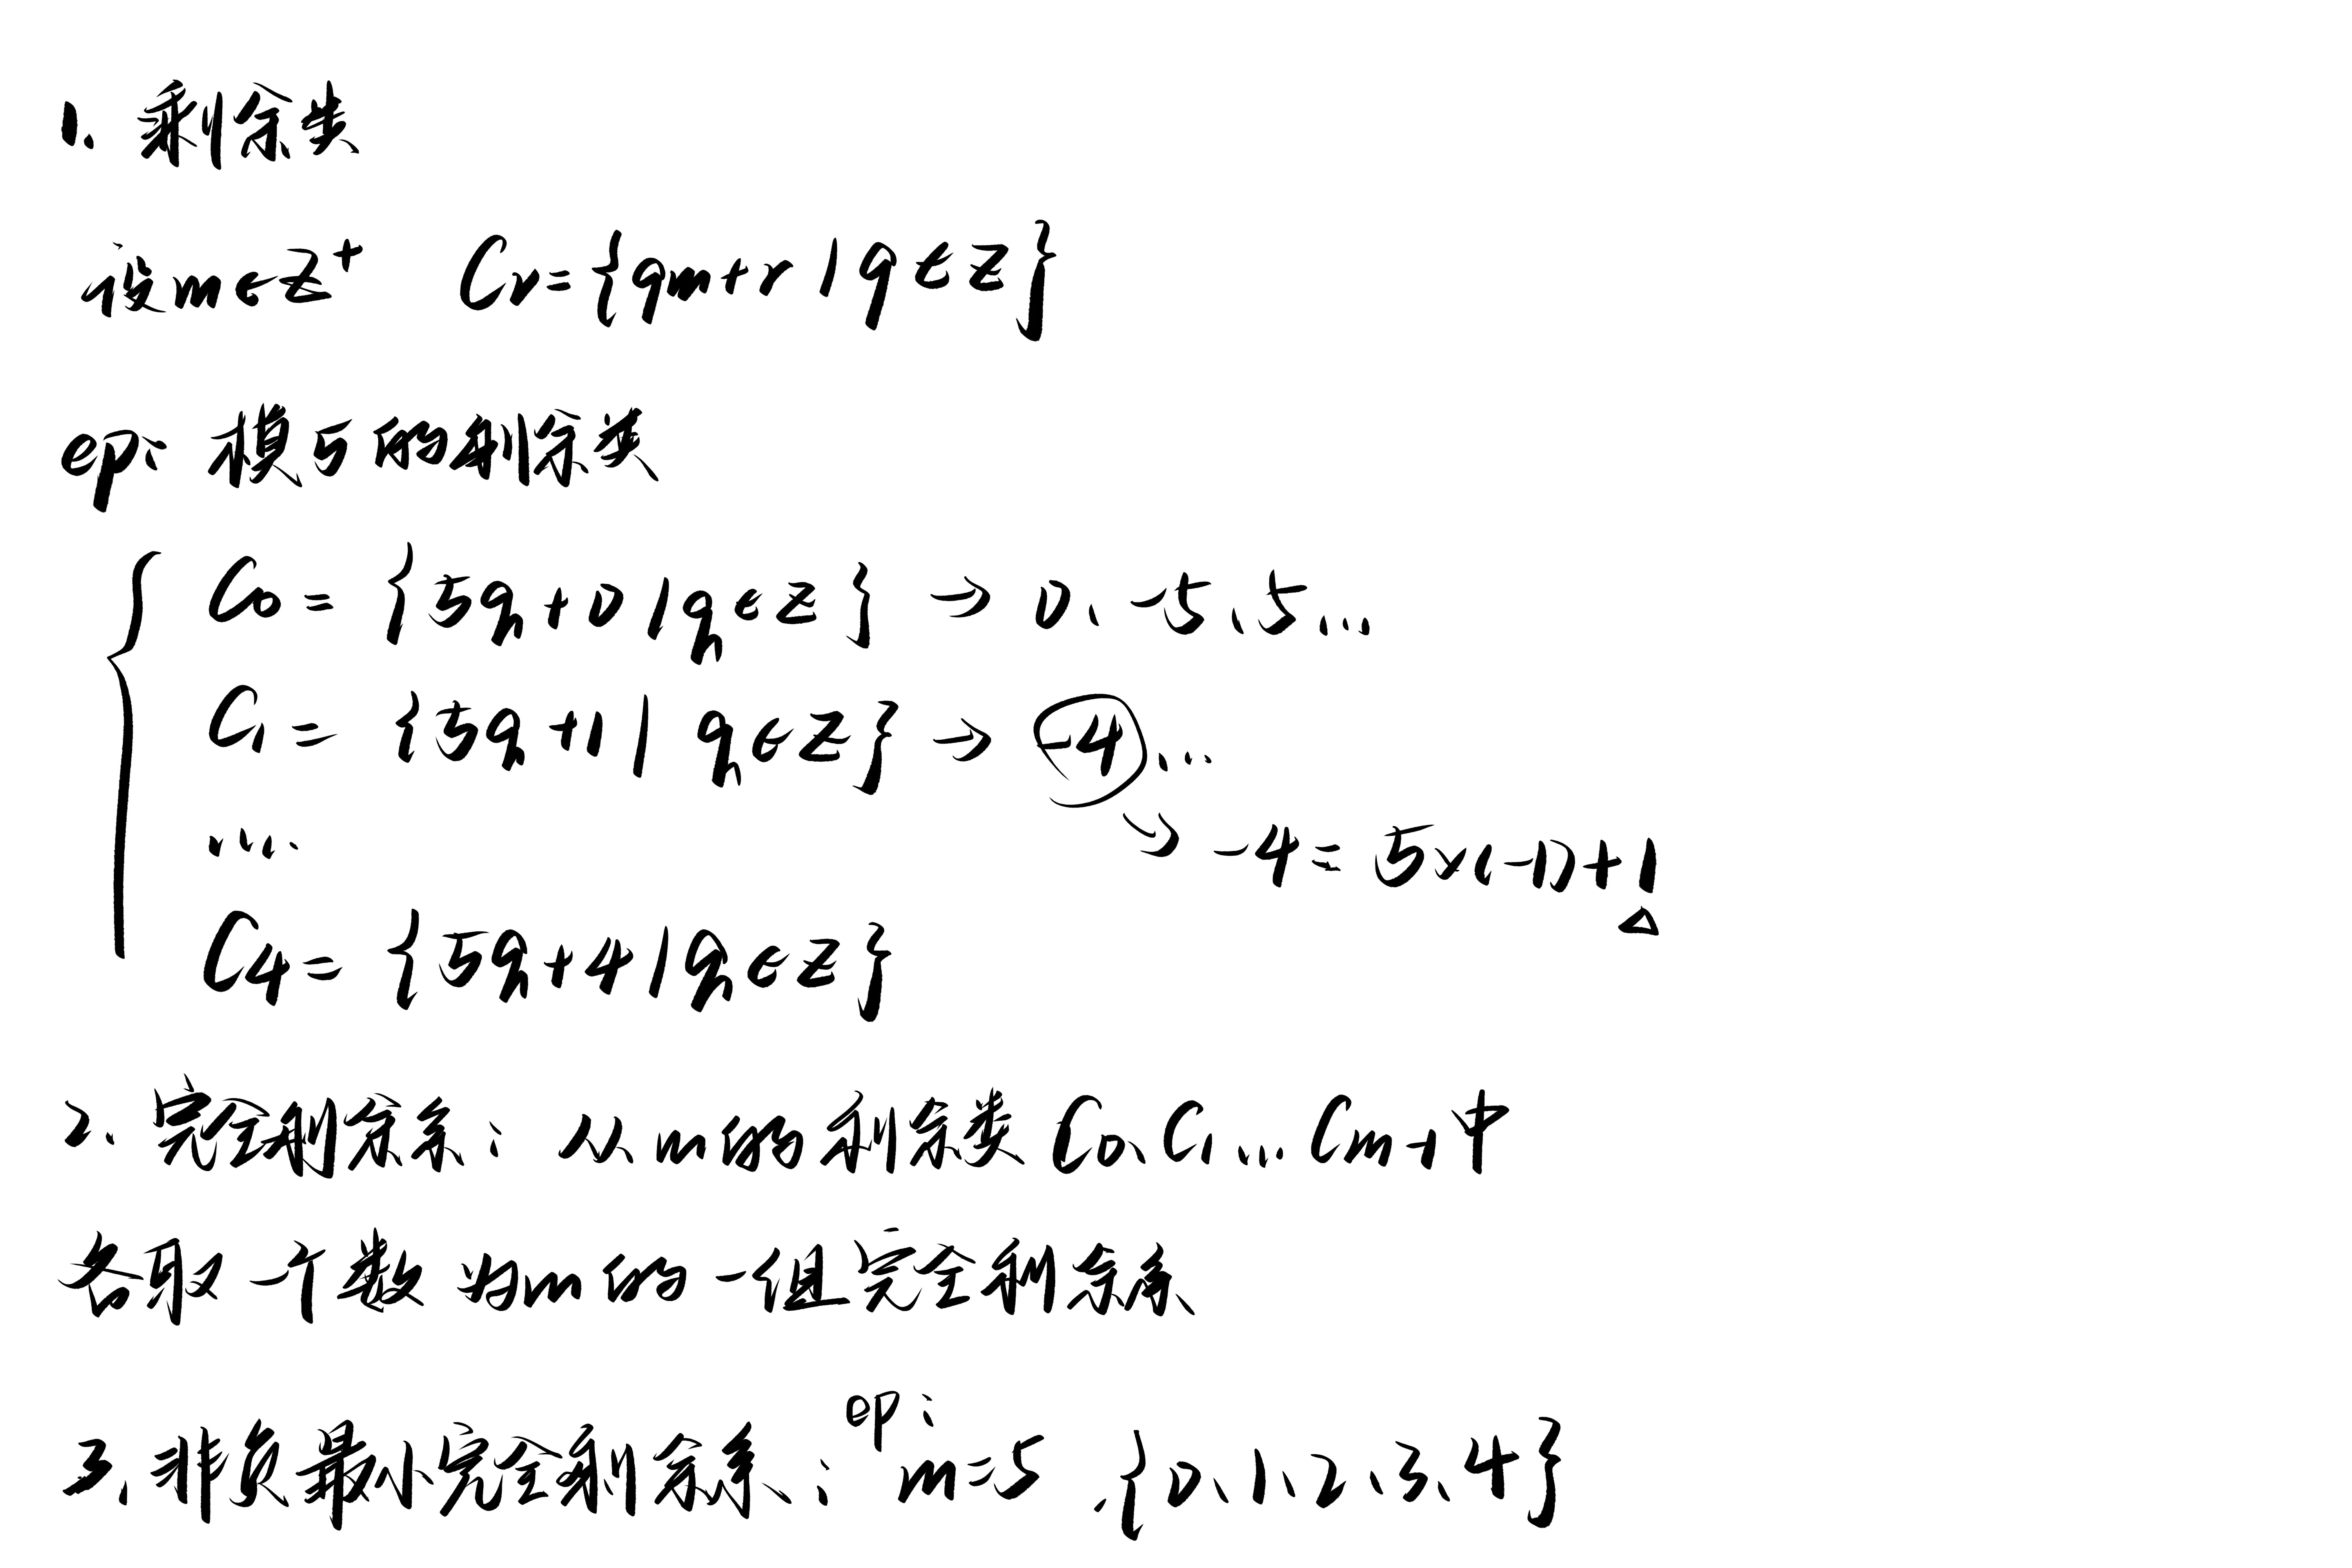 1. 剩余类
设m∈Z⁺ Cᵣ={qm+r|q∈Z}
ep: 模5的剩余类
C₀= {5q+0|q∈Z} ⇒ 0, -5, 5...
C₁= {5q+1|q∈Z} ⇒ -4...
....
→ -4=5×(-1)+1
C₄= {5q+4|q∈Z}
2. 完全剩余系: 从m的剩余类C₀、C₁...Cₘ₋₁中
各取一个数 为m的一组完全剩余系
ep:
3. 非负最小完全剩余系: m=5 .{0、1、2、3、4}